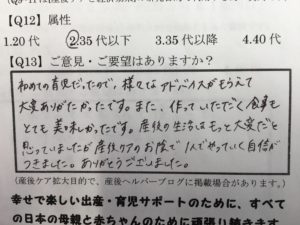 【Q12】属性
1.20代 2.35代以下 3.35代以降 4.40代
【Q13】ご意見・ご要望はありますか?
初めての育児だったので、様々なアドバイスがもらえて
大変ありがたかったです。また、作っていただく食事も
とても美味しかったです。産後の生活はもっと大変だと
思っていましたが産後ケアのお陰で1人でやっていく自信が
つきました。ありがとうございました。
(産後ケア拡大目的で、産後ヘルパーブログに掲載場合があります。)
幸せで楽しい出産・育児サポートのために、すべて
の日本の母親と赤ちゃんのために頑張り続きます